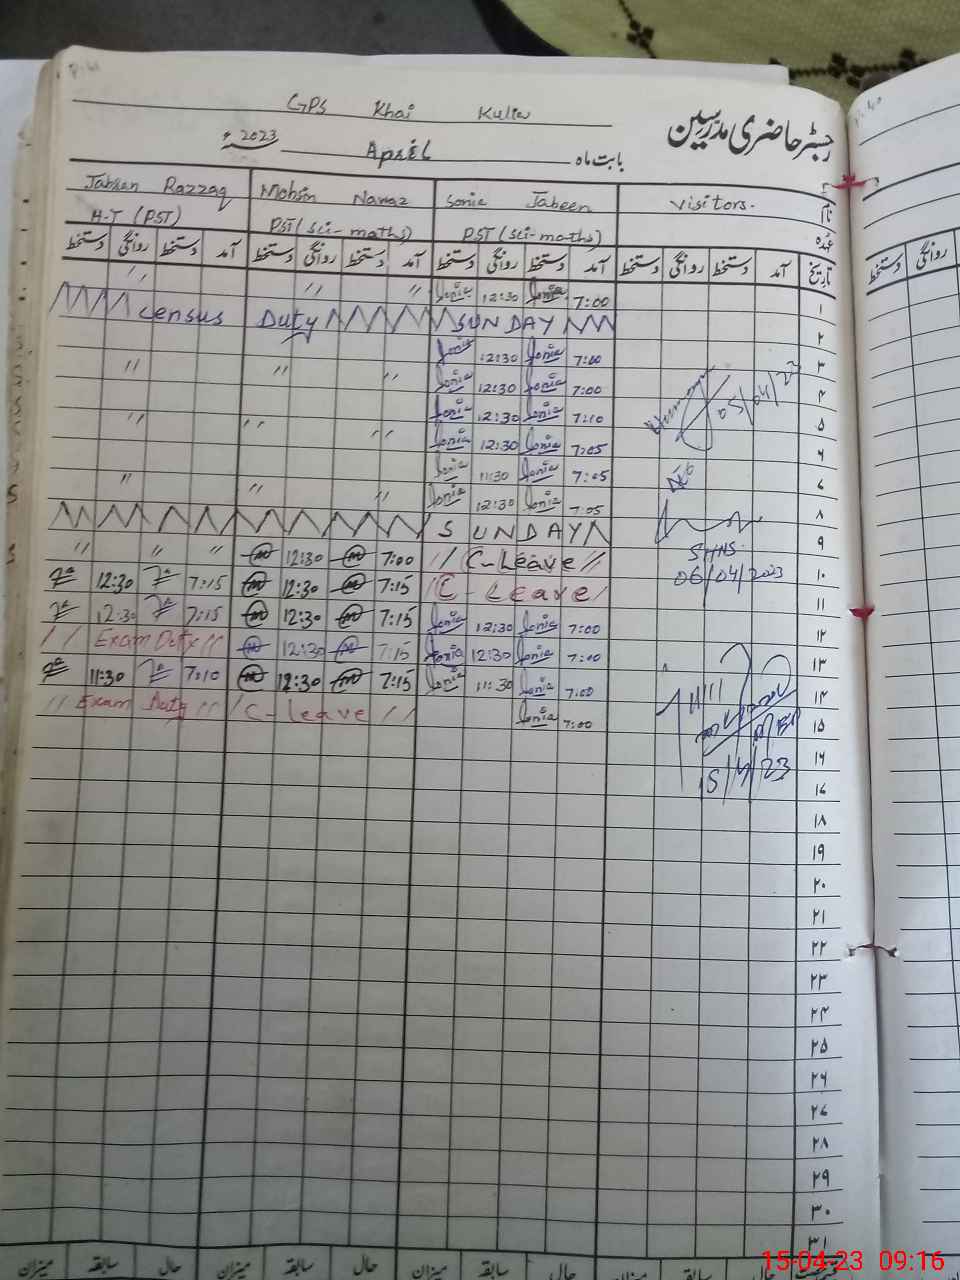 P.41
GPS Khai Kulia
رجسٹر حاضری مدرسین
بابت ماہ April 2023ء
Jabeen Razzaq Mohsin Nawaz Sonia Jabeen Visitors. نام
H-T (PST) PST (sci-maths) PST (sci-maths) عہدہ
دستخط روانگی دستخط آمد دستخط روانگی دستخط آمد دستخط روانگی دستخط آمد دستخط روانگی دستخط آمد تاریخ
〃 〃 〃 Sonia 12:30 Sonia 7:00 ۱
Census Duty SUNDAY ۲
Sonia 12:30 Sonia 7:00 ۳
〃 〃 〃 Sonia 12:30 Sonia 7:00 ۴
Sonia 12:30 Sonia 7:10 05/04/23 ۵
〃 〃 〃 Sonia 12:30 Sonia 7:05 ۶
Sonia 11:30 Sonia 7:05 ۷
〃 〃 〃 Sonia 12:30 Sonia 7:05 ۸
SUNDAY ۹
〃 〃 〃 12:30 7:00 // C-Leave // ۱۰
12:30 7:15 12:30 7:15 C-Leave 06/04/2023 ۱۱
12:30 7:15 12:30 7:15 Sonia 12:30 Sonia 7:00 ۱۲
// Exam Duty // 12:30 7:15 Sonia 12:30 Sonia 7:00 ۱۳
11:30 7:10 12:30 7:15 Sonia 11:30 Sonia 7:00 ۱۴
// Exam Duty // / C-Leave // Sonia 7:00 ۱۵
15/4/23 ۱۶
۱۷
۱۸
۱۹
۲۰
۲۱
۲۲
۲۳
۲۴
۲۵
۲۶
۲۷
۲۸
۲۹
۳۰
۳۱
میزان سابقہ حال میزان سابقہ حال میزان سابقہ حال میزان سابقہ حال
P.40
دستخط روانگی
15-04-23 09:16